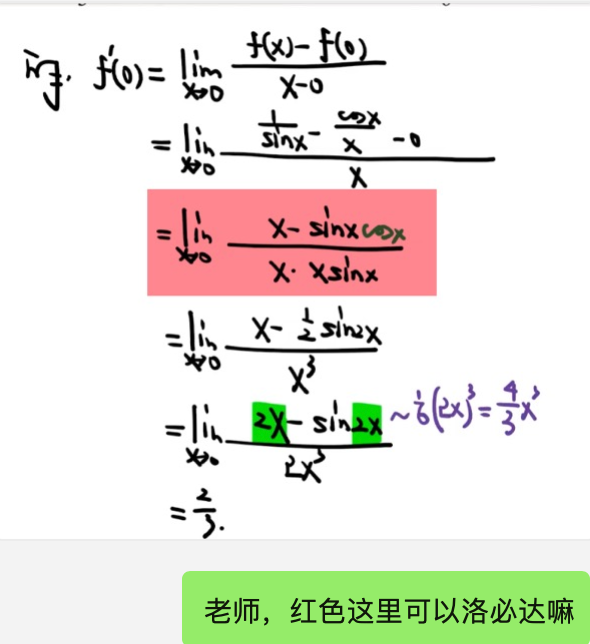 f'(0) = lim x→0 (f(x) - f(0)) / (x-0)
= lim x→0 (1/sinx - cosx/x - 0) / x
= lim x→0 (x - sinxcosx) / (x · xsinx)
= lim x→0 (x - 1/2 sin2x) / x³
= lim x→0 (2x - sin2x) / 2x³ ~ 1/6(2x)³ = 4/3 x³
= 2/3.
老师，红色这里可以洛必达嘛